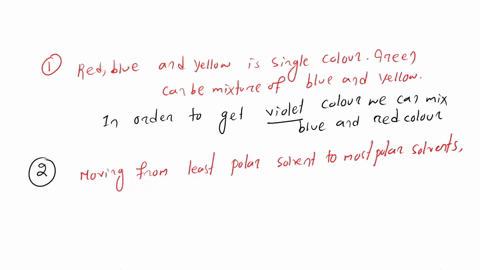 ① Red, blue and yellow is single colour. Green
can be mixture of blue and yellow.
In order to get violet colour we can mix
blue and red colour
② Moving from least polar solvent to most polar solvents,